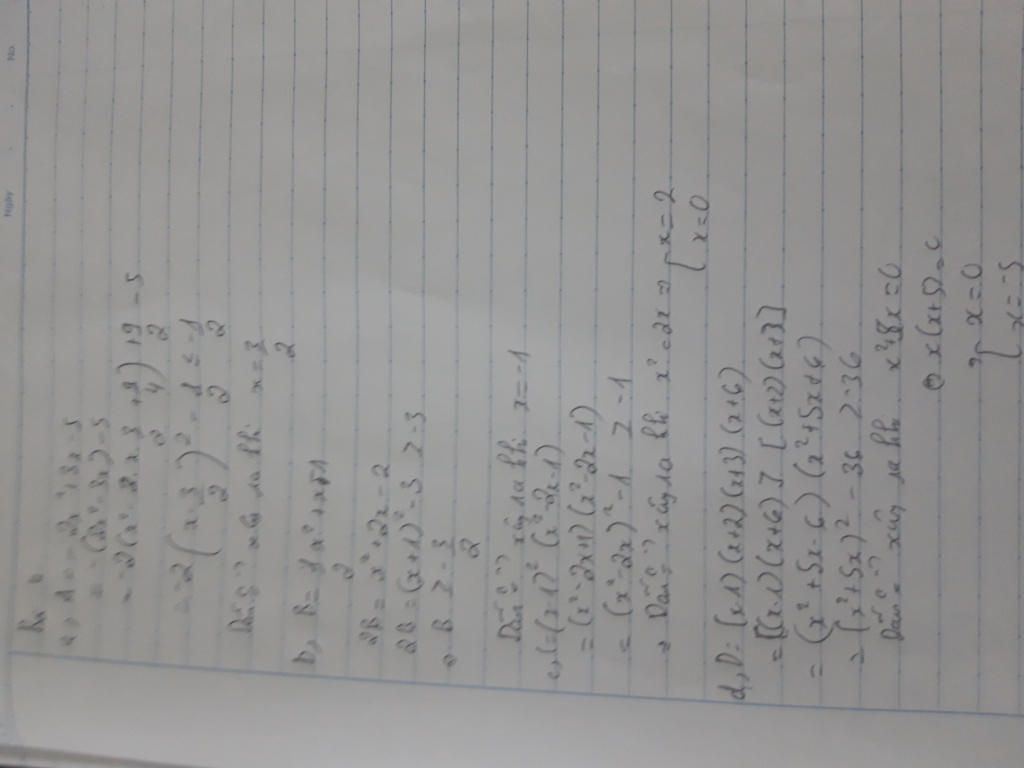 No.
Ngày
Bài 6
a, A = -2x² + 3x - 5
= -(2x² - 3x) - 5
= -2(x² - 2.x.3/2 + 9/4) + 9/2 - 5
= -2(x - 3/2)² - 1/2 ≤ -1/2
Dấu "=" xảy ra khi x = 3/2
b, B = 1/2 x² + x - 1
2B = x² + 2x - 2
2B = (x+1)² - 3 ≥ -3
=> B ≥ -3/2
Dấu "=" xảy ra khi x = -1
c, C = (x-1)² (x²-2x-1)
= (x²-2x+1) (x²-2x-1)
= (x²-2x)² - 1 ≥ -1
=> Dấu "=" xảy ra khi x² - 2x => [x = 2
[x = 0
d, D = (x-1)(x+2)(x+3)(x+6)
= [(x-1)(x+6)] [(x+2)(x+3)]
= (x² + 5x - 6) (x² + 5x + 6)
= (x² + 5x)² - 36 ≥ -36
Dấu "=" xảy ra khi x² + 5x = 0
x(x+5) = 0
[x = 0
[x = -5